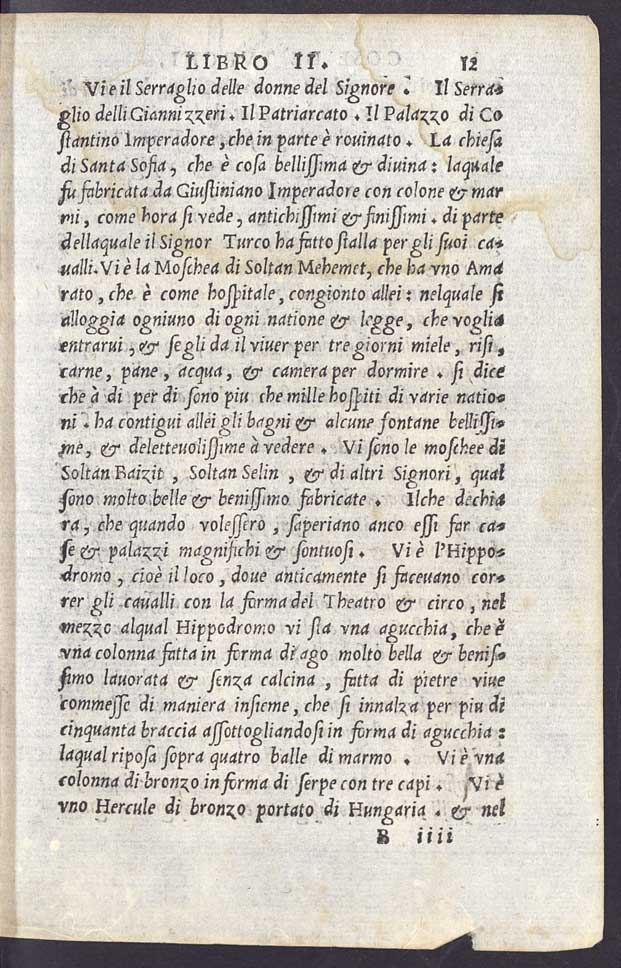 LIBRO II. 12
Vi e il Serraglio delle donne del Signore. Il Serra-
glio delli Giannizzeri. Il Patriarcato. Il Palazzo di Co
stantino Imperadore, che in parte è rouinato. La chiesa
di Santa Sofia, che è cosa bellissima & diuina: laquale
fu fabricata da Giustiniano Imperadore con colone & mar
mi, come hora si vede, antichissimi & finissimi. di parte
dellaquale il Signor Turco ha fatto stalla per gli suoi ca-
ualli. Vi è la Moschea di Soltan Mehemet, che ha vno Ama
rato, che è come hospitale, congionto allei: nelquale si
alloggia ogniuno di ogni natione & legge, che voglia
entrarui, & se gli da il viuer per tre giorni miele, risi,
carne, pane, acqua, & camera per dormire. si dice
che à di per di sono piu che mille hospiti di varie natio-
ni. ha contigui allei gli bagni & alcune fontane bellissi-
me, & deletteuolissime à vedere. Vi sono le moschee di
Soltan Baizit, Soltan Selin, & di altri Signori, qual
sono molto belle & benissimo fabricate. Ilche dechia
ra, che quando volessero, saperiano anco essi far ca-
se & palazzi magnifichi & sontuosi. Vi è l'Hippo-
dromo, cioè il loco, doue anticamente si faceuano cor-
rer gli caualli con la forma del Theatro & circo, nel
mezzo alqual Hippodromo vi sta vna agucchia, che è
vna colonna fatta in forma di ago molto bella & benis-
simo lauorata & senza calcina, fatta di pietre viue
commesse di maniera insieme, che si innalza per piu di
cinquanta braccia assottogliandosi in forma di agucchia:
laqual riposa sopra quatro balle di marmo. Vi è vna
colonna di bronzo in forma di serpe con tre capi. Vi è
vno Hercule di bronzo portato di Hungaria. & nel
B iiii